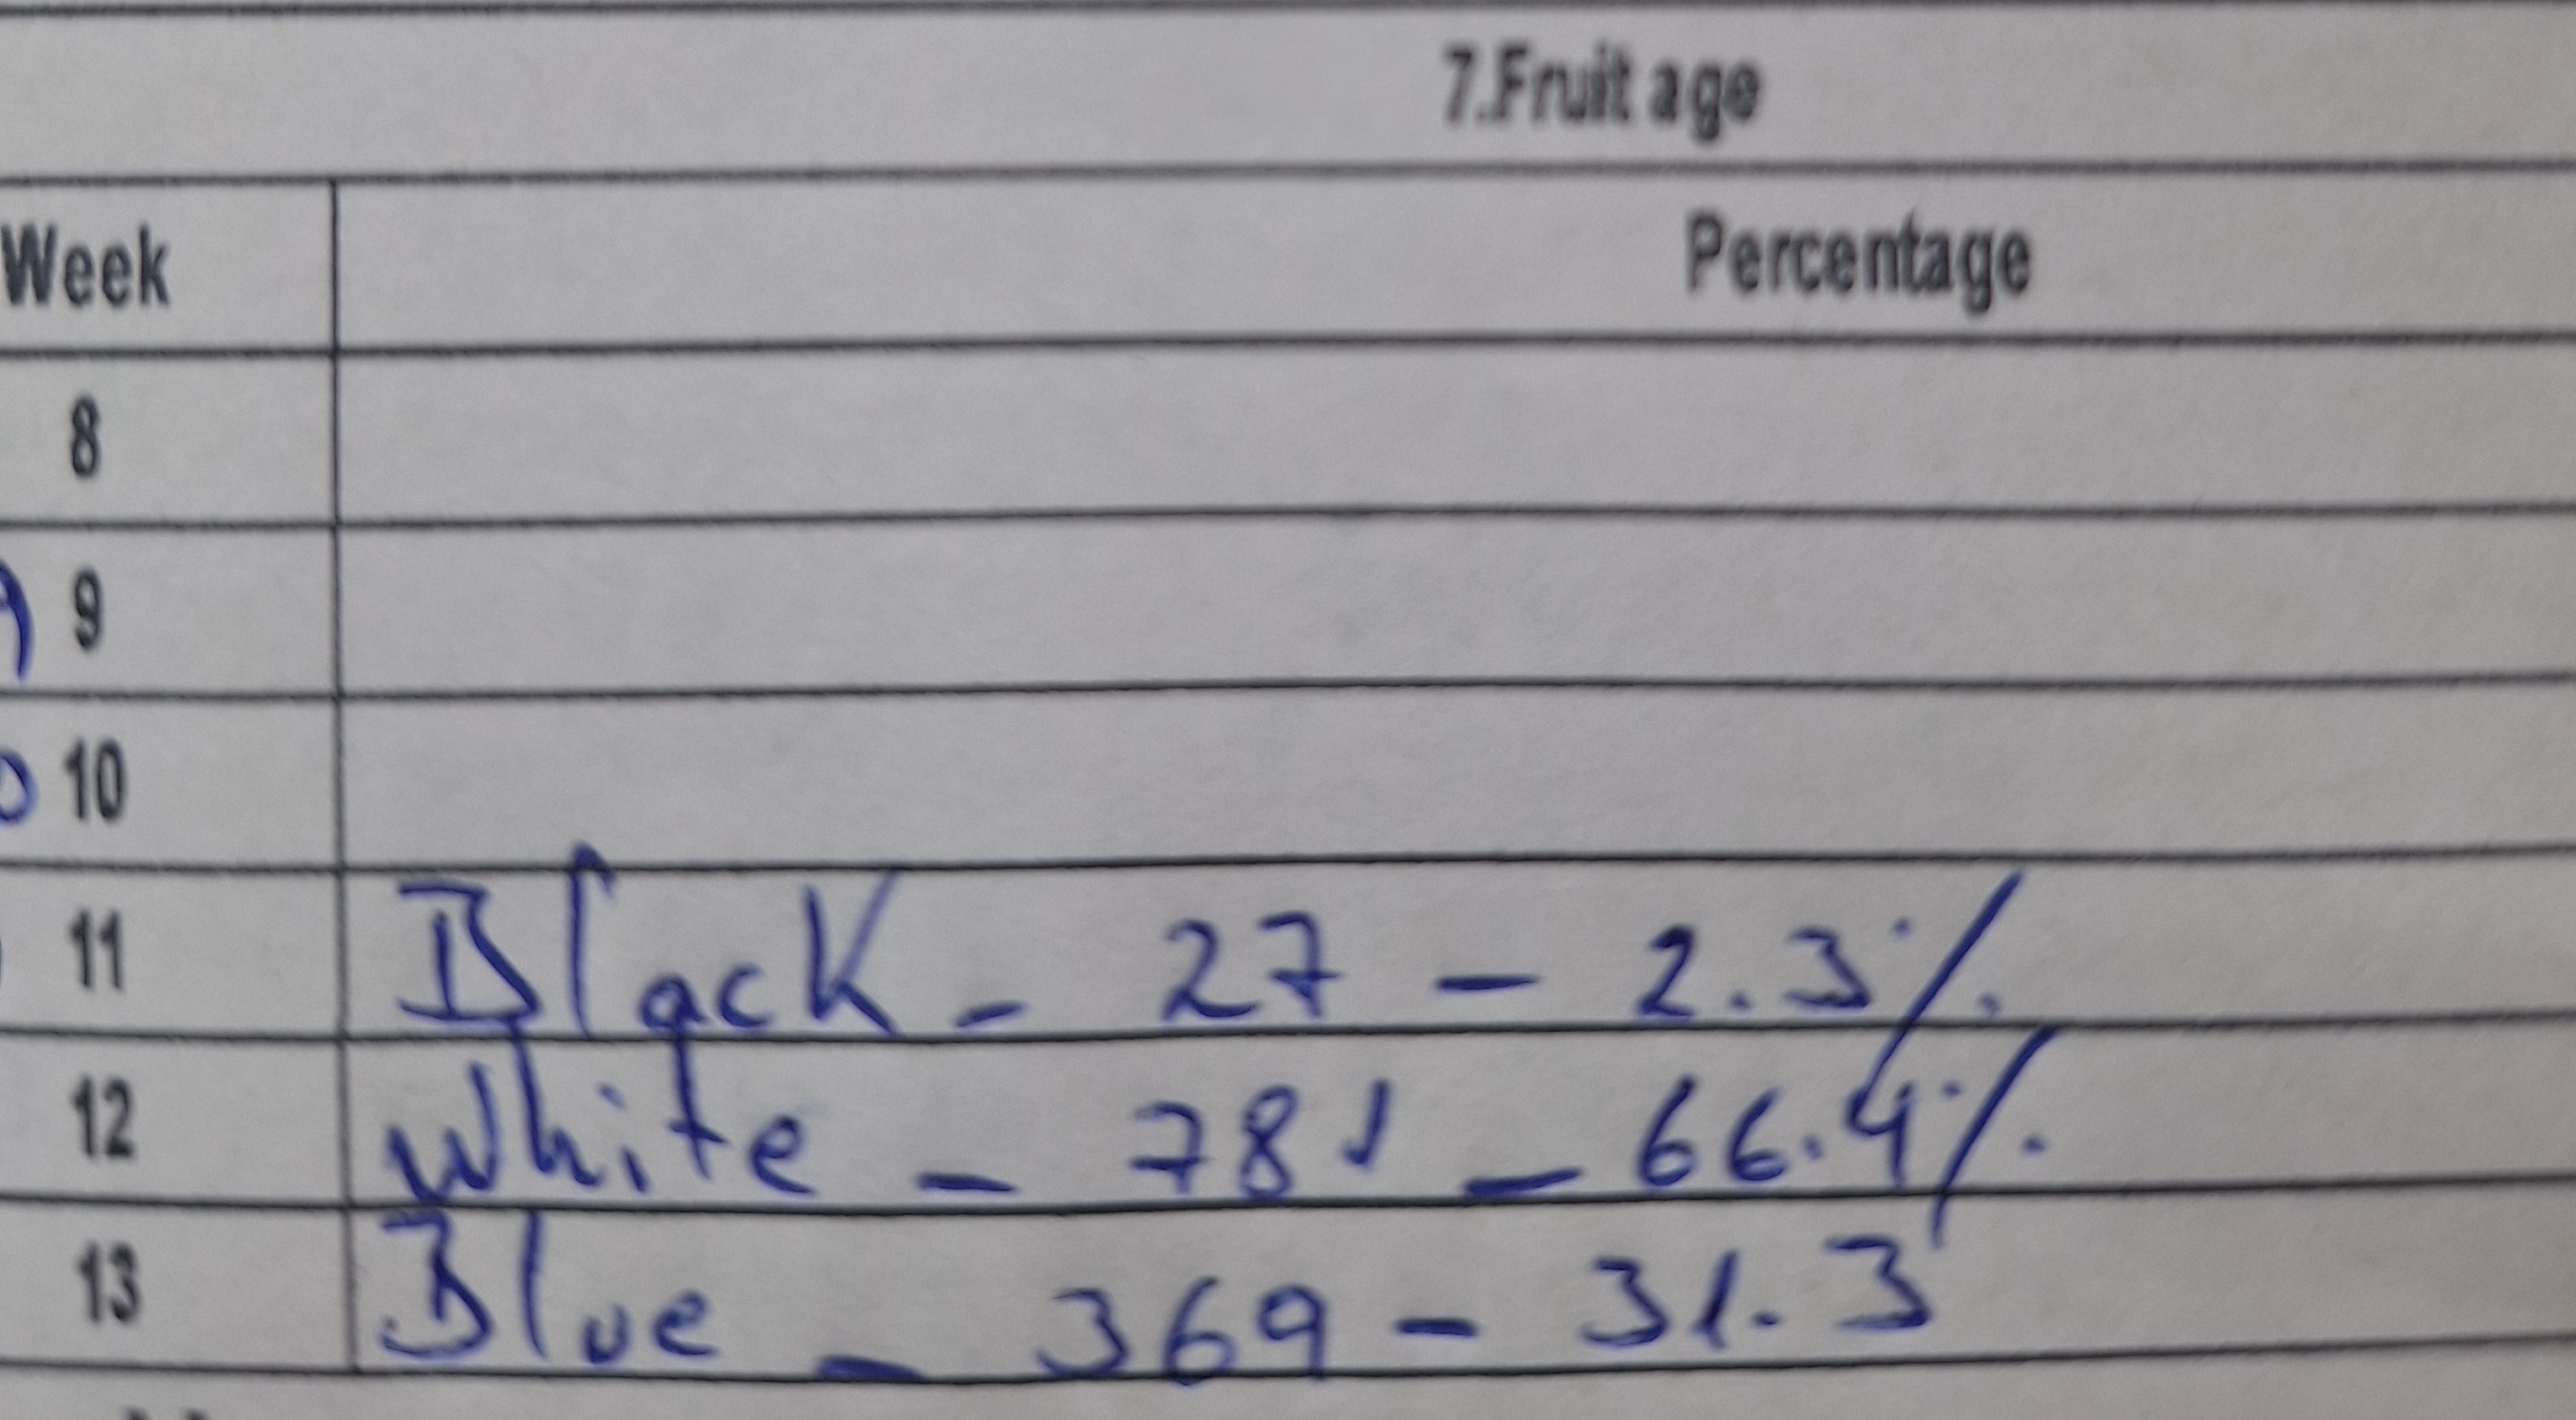 7.Fruit age
Week Percentage
8
9
10
11 Black - 27 - 2.3%
12 White - 781 - 66.4%
13 Blue - 369 - 31.3